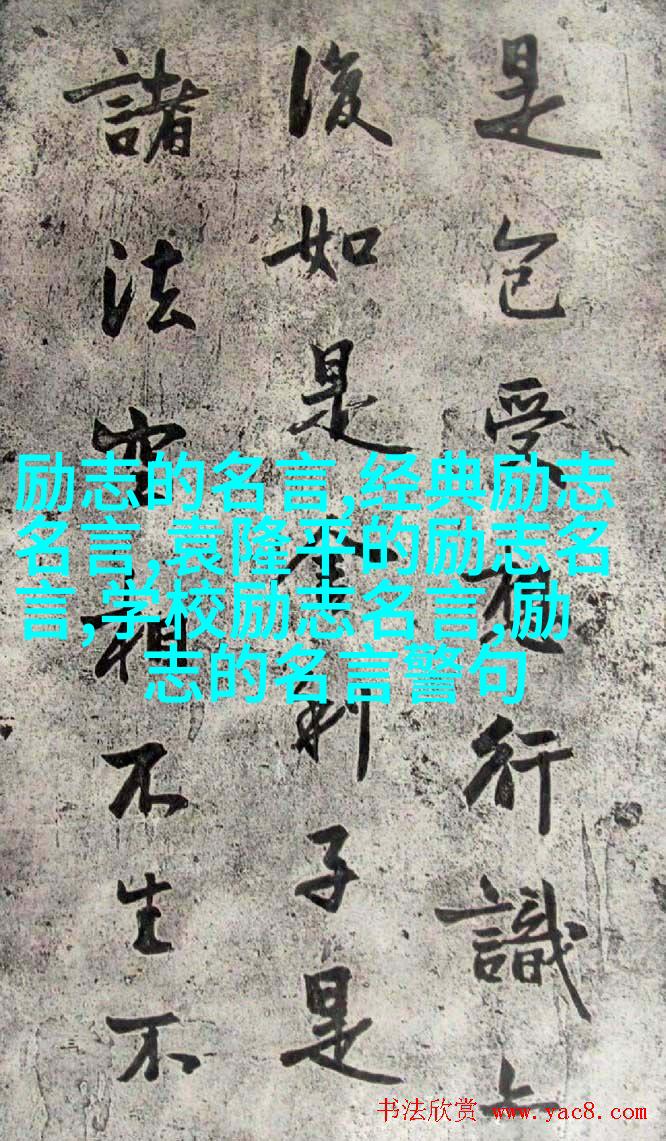 是色受行識
復如是舍利子是
諸法空相不生不
励志的名言,经典励志
名言,袁隆平的励志名
言,学校励志名言,励
志的名言警句
书法欣赏 www.yac8.com